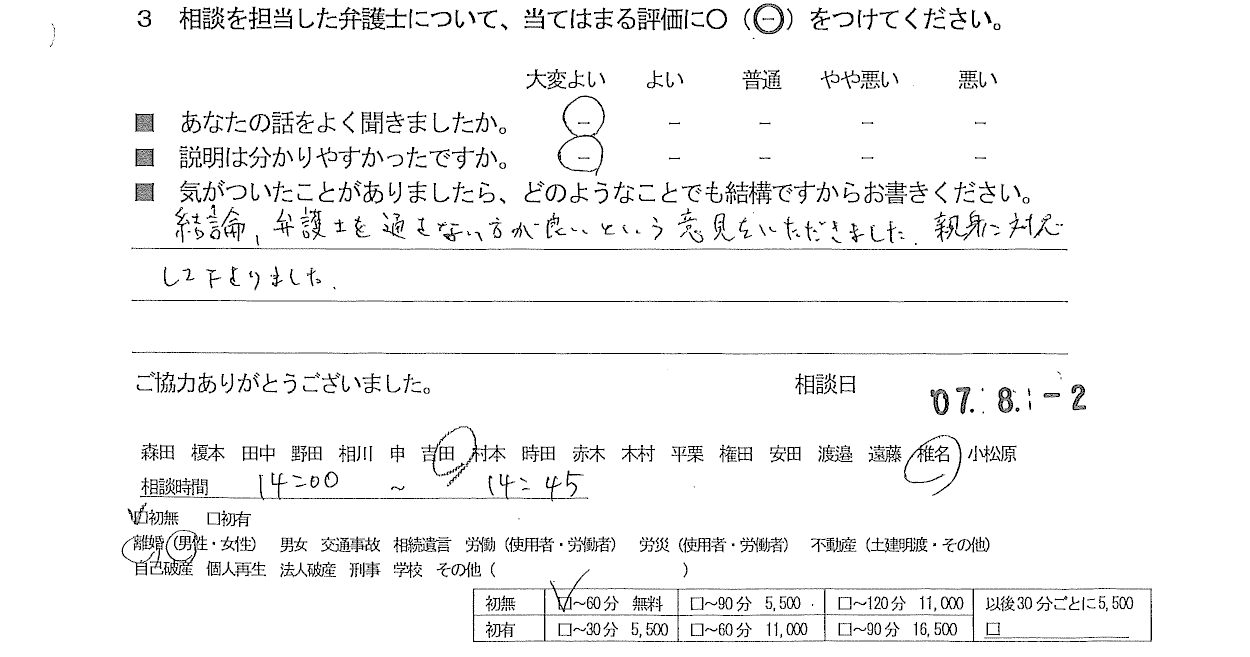 3 相談を担当した弁護士について、当てはまる評価に○（㊀）をつけてください。
大変よい よい 普通 やや悪い 悪い
■ あなたの話をよく聞きましたか。 － － － － －
■ 説明は分かりやすかったですか。 － － － － －
■ 気がついたことがありましたら、どのようなことでも結構ですからお書きください。
結論、弁護士を通さない方が良いという意見をいただきました。親身に対応
して下さりました。
ご協力ありがとうございました。 相談日 '07. 8. -2
森田 榎本 田中 野田 相川 申 吉田 村本 時田 赤木 木村 平栗 権田 安田 渡邉 遠藤 椎名 小松原
相談時間 14:00 ~ 14:45
□初無 □初有
離婚（男性・女性） 男女 交通事故 相続遺言 労働（使用者・労働者） 労災（使用者・労働者） 不動産（土建明渡・その他）
自己破産 個人再生 法人破産 刑事 学校 その他（ ）
初無 □～60分 無料 □～90分 5,500 □～120分 11,000 以後30分ごとに5,500
初有 □～30分 5,500 □～60分 11,000 □～90分 16,500 □